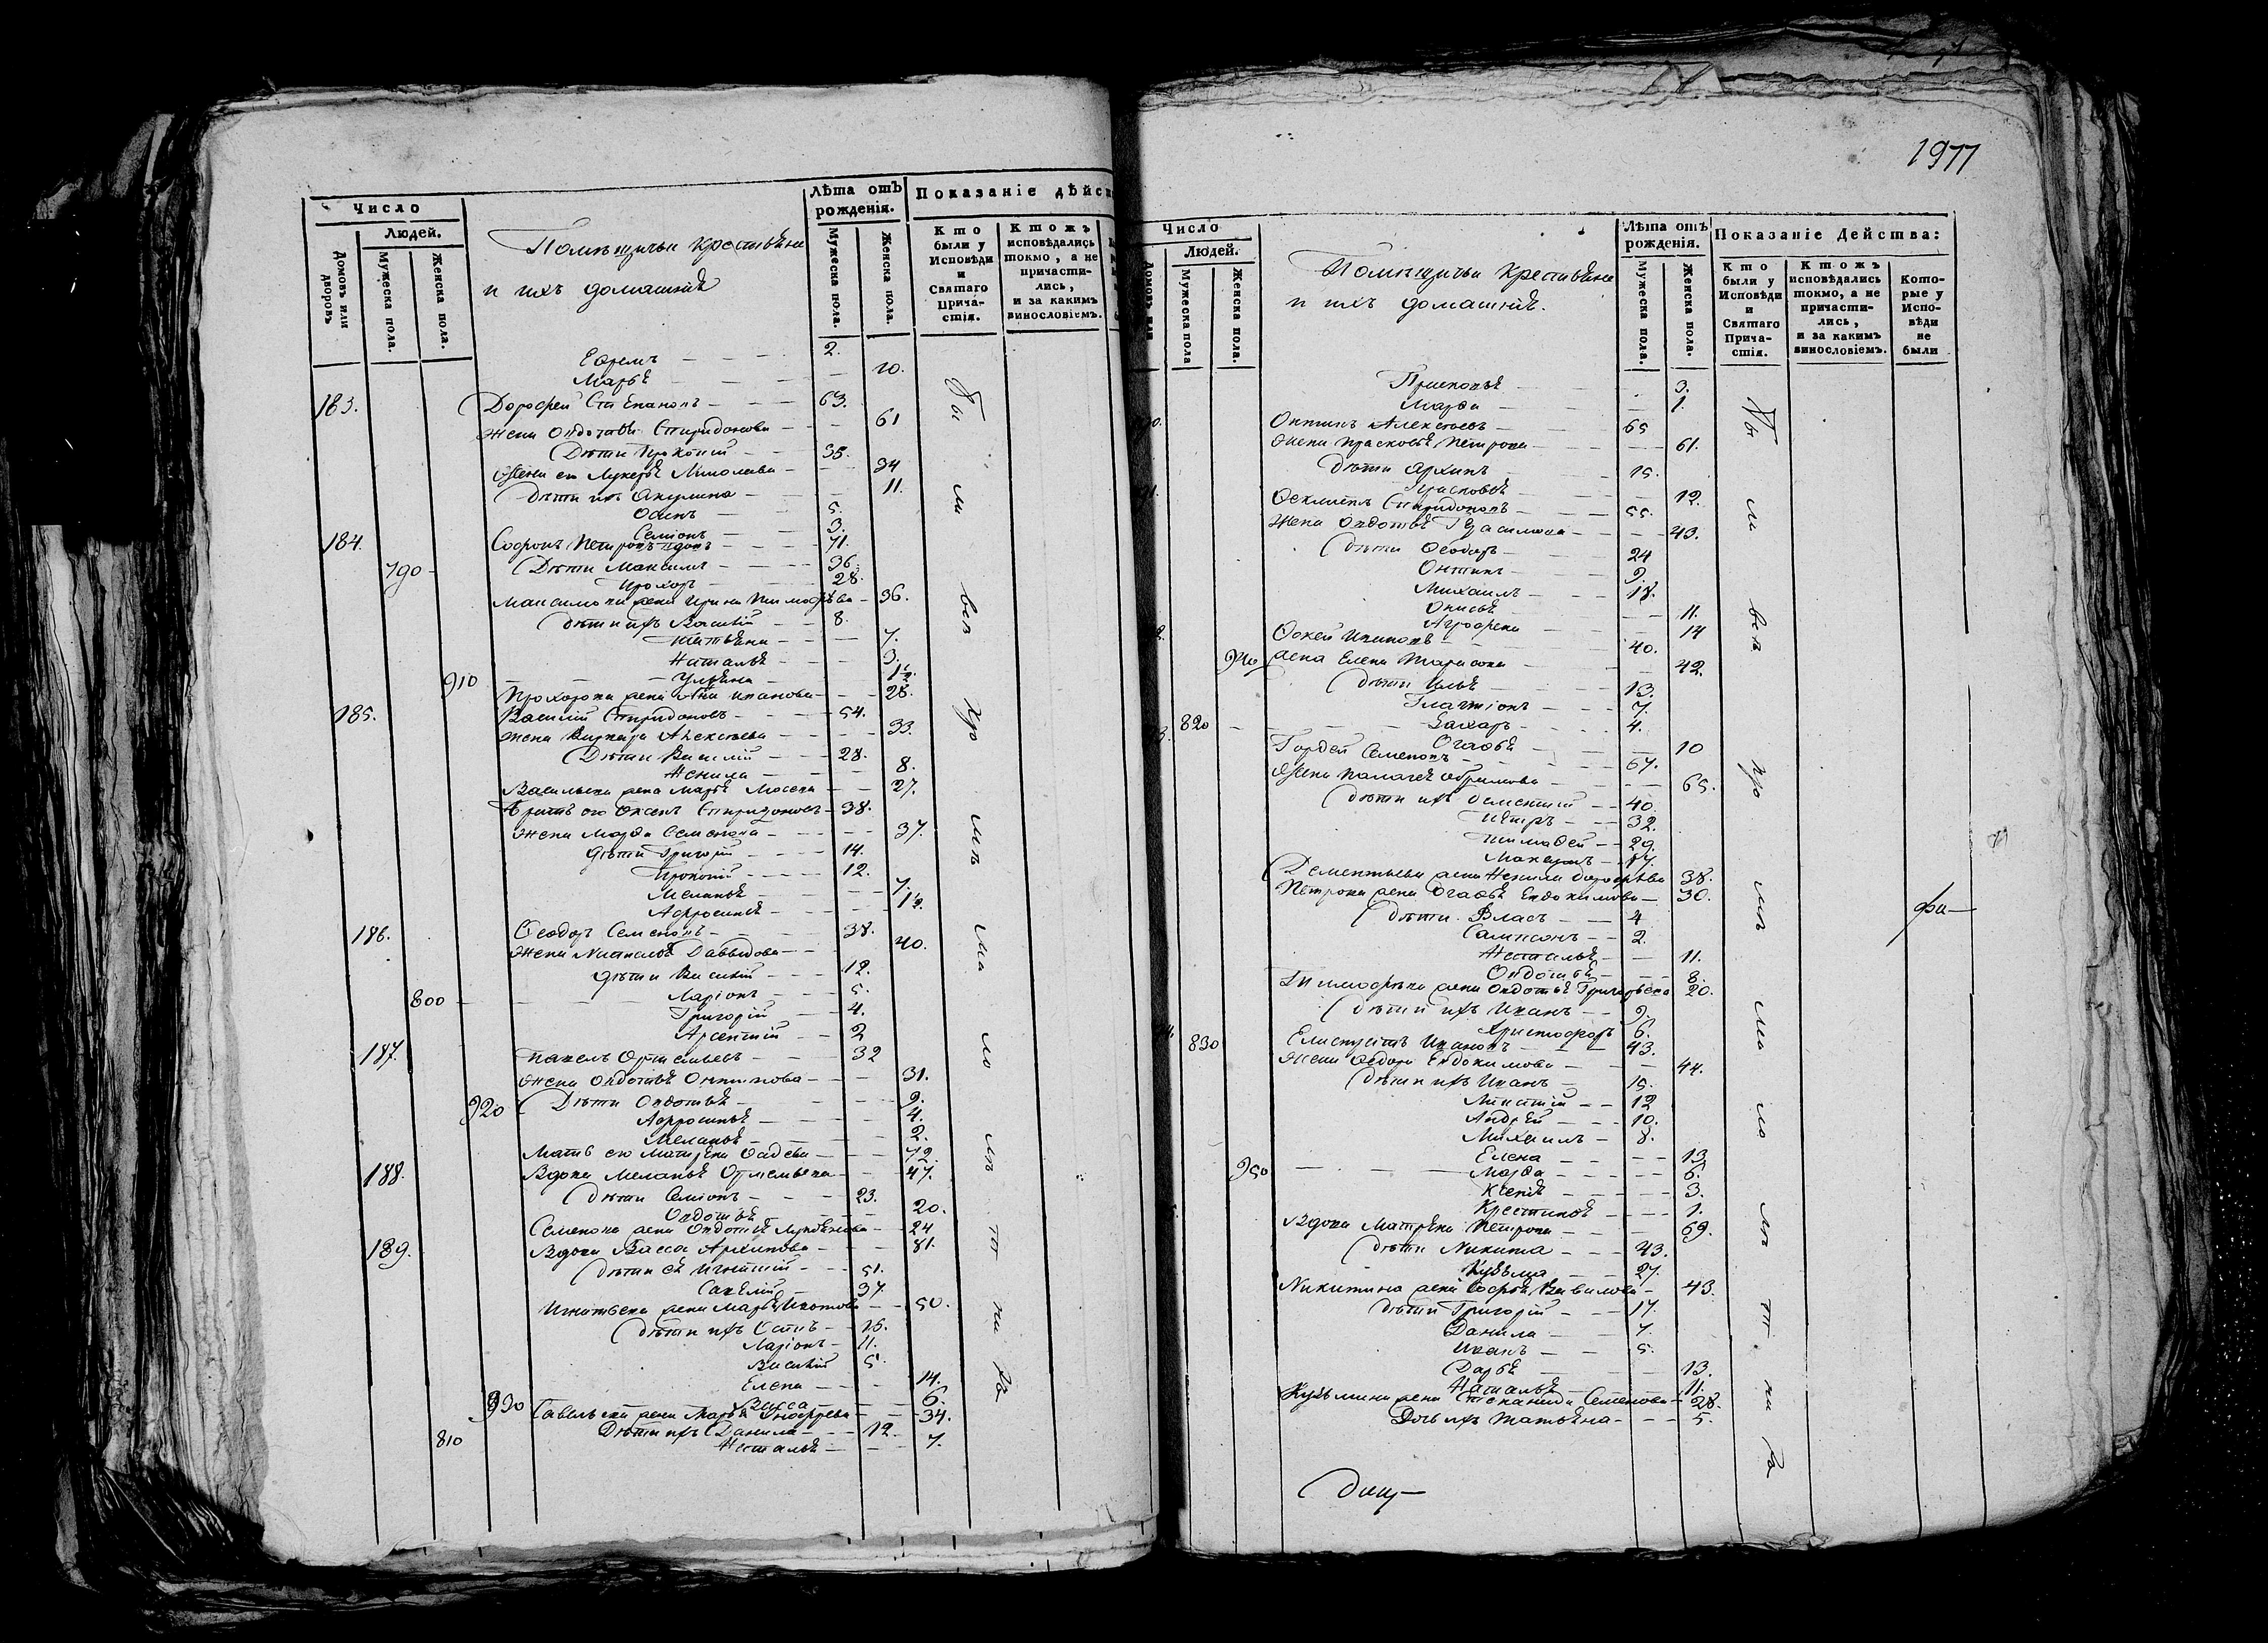 Число
Людей.
Домовъ или дворовъ
Мужеска пола.
Женска пола.
Помѣщичьи крестьяне
и ихъ домашніе
Лѣта отъ рожденія.
Мужеска пола.
Женска пола.
Показаніе дѣйс
Кто были у Исповѣди и Святаго Прича-стія.
Ктожъ исповѣдались токмо, а не причасти-лись, и за какимъ винословіемъ.
Ефремъ 2.
Марья 10.
183. Дорофей Степановъ 63.
Жена Овдотья Спиридонова 61
Дѣти Прокопій 35.
Жена его Лукерья 34
Дѣти ихъ Акулина 11.
Осипъ 5.
Семіонъ 3.
184. Софронъ Петровъ вдовъ 71.
790 Дѣти Максимъ 36.
Прохоръ 28.
Максимова жена Ирина Тимофѣева 36.
Дѣти ихъ Василій 8.
Татьяна 7.
Наталья 3.
910 Ульяна 1½
Прохорова жена Анна Иванова 28.
185. Василій Спиридоновъ 54.
Жена Варвара Алексѣева 33.
Дѣти Василій 28.
Ненила 8.
Васильева жена Марья Мосеева 27.
Братъ его Спиридоновъ 38.
Жена Марфа Семенова 37.
Дѣти Григорій 14.
Прокопій 12.
Меланья 7.
Афросинья 1½
186. Феодоръ Семеновъ 38.
Жена Наталья Давыдова 40.
Дѣти Василій 12.
800 Ларіонъ 5.
Григорій 4.
Арсентій 2
187. Павелъ Артемьевъ 32
Жена Овдотья Онтипова 31.
920 Дѣти Овдотья 9.
Афросинья 4.
Меланья 2.
Мать его Матрена Фадеева 72.
188. Вдова Меланья Артемьева 47.
Дѣти Семіонъ 23.
Овдотья 20.
Семенова жена Овдотья 24
189. Вдова Васса Архипова 81.
Дѣти ея Игнатій 51.
Савелій 37
Игнатьева жена Марья 50.
Дѣти ихъ 15.
Ларіонъ 11.
Василій 5.
Елена 14.
930 Васса 6.
Савельева жена Марья 34.
Дѣти ихъ Данила 12.
810 Наталья 7.
Бы
ли
всѣ
кро
мѣ
ма
ло
лѣ
т
ни
ха
1977
Число
Людей.
Домовъ или
Мужеска пола
Женска пола.
Помѣщичьи крестьяне
и ихъ домашніе.
Лѣта отъ рожденія.
Мужеска пола.
Женска пола.
Показаніе Действа:
Кто были у Исповѣди и Святаго Прича-стія.
Ктожъ исповѣдались токмо, а не причасти-лись, и за какимъ винословіемъ.
Кото-рые у Испо-вѣди не были
Прасковья 3.
Марфа 1.
Онтипъ Алексѣевъ 65
Жена Прасковья Петрова 61.
Дѣти Архипъ 15.
Прасковья 12.
Спиридоновъ 55.
Жена Овдотья Герасимова 43.
Дѣти Феодоръ 24
Онтипъ 9.
Михаилъ 18.
Онисья 11.
Агрофена 14
Фокей Ивановъ 40.
940 жена Елена Тарасова 42.
Дѣти Илья 13.
Галактіонъ 7.
820 Захаръ 4.
Огафья 10
Гордей Семеновъ 67.
Жена Палагея Ефримова 65.
Дѣти ихъ Дементій 40.
Петръ 32.
Тимофей 29.
17.
Дементьева жена Ненила Дорофѣева 38.
Петрова жена Огафья Евдокимова 30.
Дѣти Власъ 4
Сампсонъ 2.
Наталья 11.
Овдотья 8.
Тимофѣева жена Овдотья Григорьева 20.
Дѣти ихъ Иванъ 9.
Христофоръ 6.
830 Ивановъ 43.
Жена Федора Евдокимова 44.
Дѣти ихъ Иванъ 15.
12
Андрей 10.
Михаилъ 8.
Елена 13
950 Марфа 6.
Ксенія 3.
Крестинья 1.
Вдова Матрена Петрова 69.
Дѣти Никита 43.
Кузьма 27.
Никитина жена Софья Вавилова 43.
Дѣти Григорій 17.
Данила 7.
Иванъ 5.
Дарья 13.
Наталья 11.
Кузьмина жена Степанида Семенова 28.
Дочь ихъ Татьяна 5.
Бы
ли
всѣ
кро
мѣ
ма
ло
лѣ
т
ни
ха